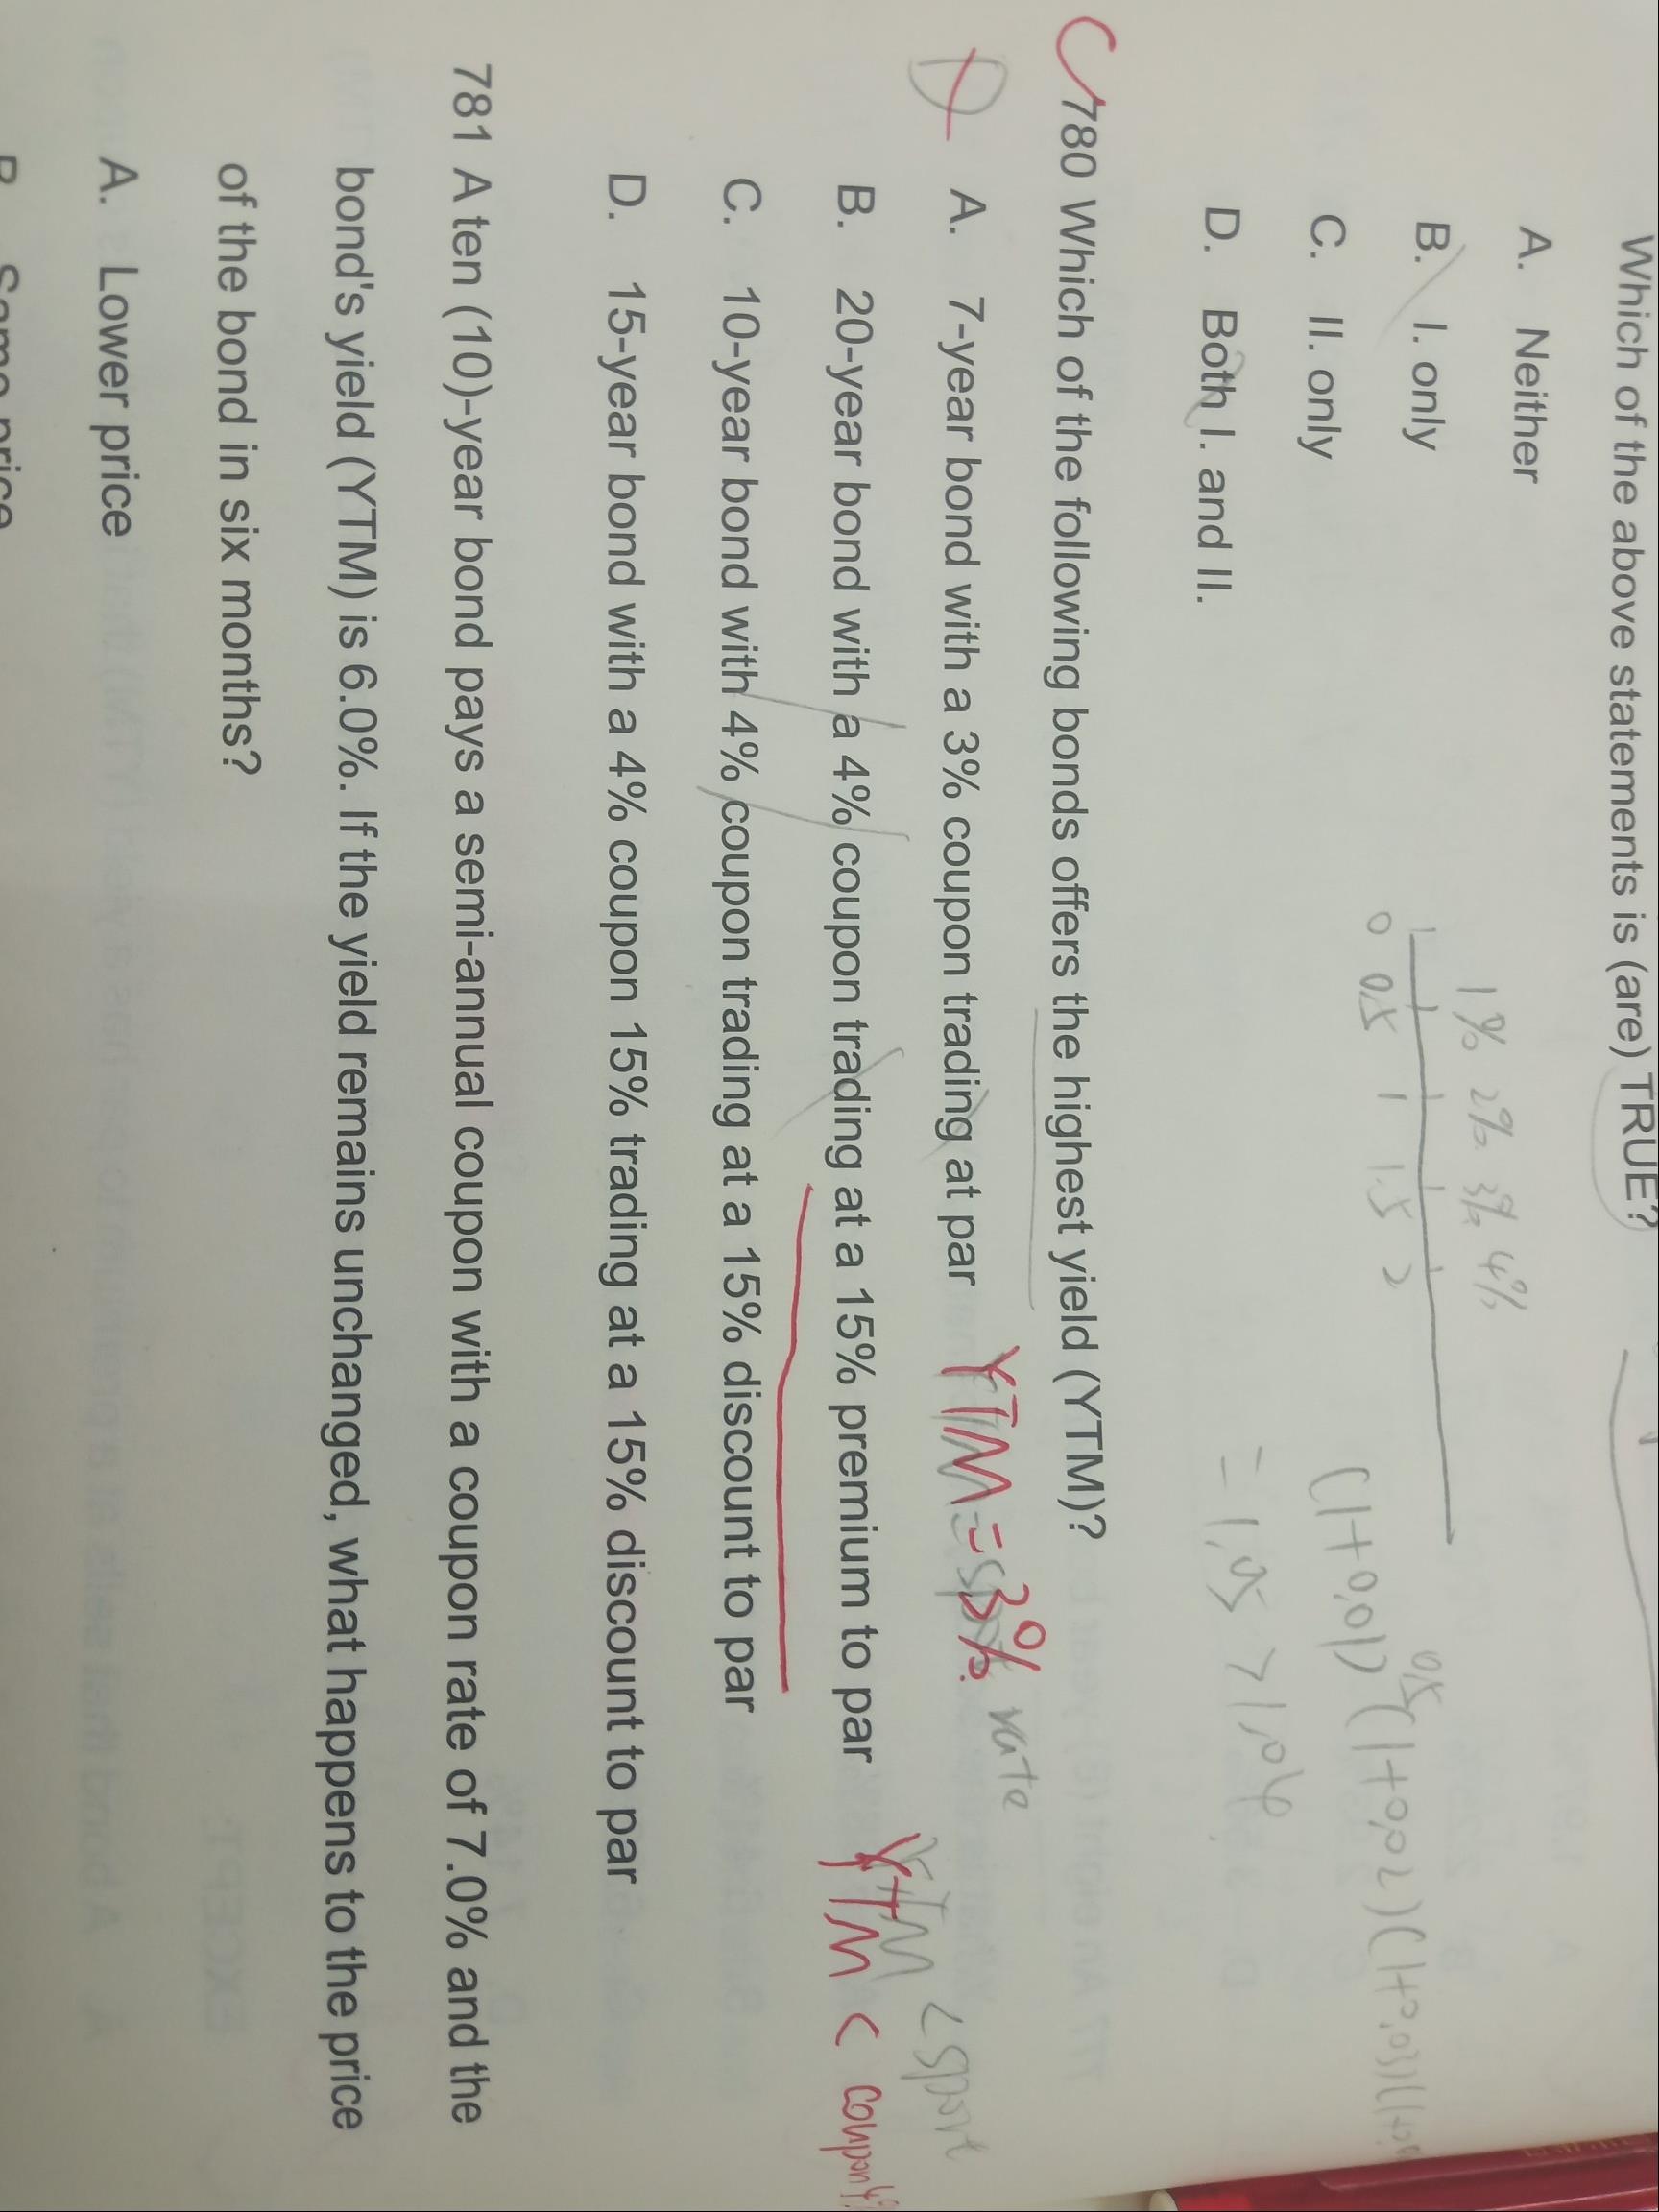 Which of the above statements is (are) TRUE?
A. Neither
B. I. only
C. II. only
D. Both I. and II.
1% 2% 3% 4%
0 0.5 1 1.5 2
(1+0.01)^0.5 (1+0.02)(1+0.03)(1+0.0
= 1.05 > 1.04
C 780 Which of the following bonds offers the highest yield (YTM)?
D A. 7-year bond with a 3% coupon trading at par YTM = 3% rate
B. 20-year bond with a 4% coupon trading at a 15% premium to par YTM < coupon
YTM < spot
C. 10-year bond with 4% coupon trading at a 15% discount to par
D. 15-year bond with a 4% coupon 15% trading at a 15% discount to par
781 A ten (10)-year bond pays a semi-annual coupon with a coupon rate of 7.0% and the
bond's yield (YTM) is 6.0%. If the yield remains unchanged, what happens to the price
of the bond in six months?
A. Lower price
B. Same price